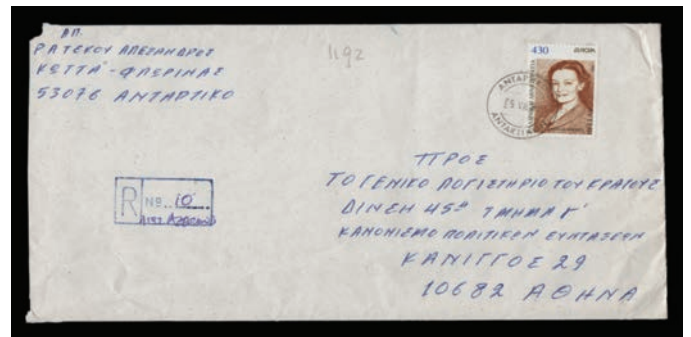 ΑΠ.
ΡΑΤΕΚΟΥ ΑΛΕΞΑΝΔΡΟΣ
ΚΩΤΤΑ - ΦΛΩΡΙΝΑΣ
53076 ΑΝΤΑΡΤΙΚΟ
1192
430 ΕΥΡΩΠΑ
R
Nº 10
ΠΡΟΣ
ΤΟ ΓΕΝΙΚΟ ΛΟΓΙΣΤΗΡΙΟ ΤΟΥ ΚΡΑΤΟΥΣ
ΔΙΝΣΗ 45η ΤΜΗΜΑ Γ'
ΚΑΝΟΝΙΣΜΟ ΠΟΛΙΤΙΚΩΝ ΣΥΝΤΑΞΕΩΝ
ΚΑΝΙΓΓΟΣ 29
10682 ΑΘΗΝΑ